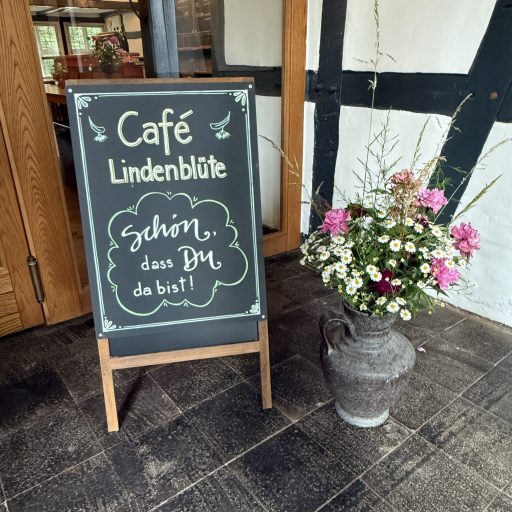 Café
Lindenblüte
Schön,
dass Du
da bist!